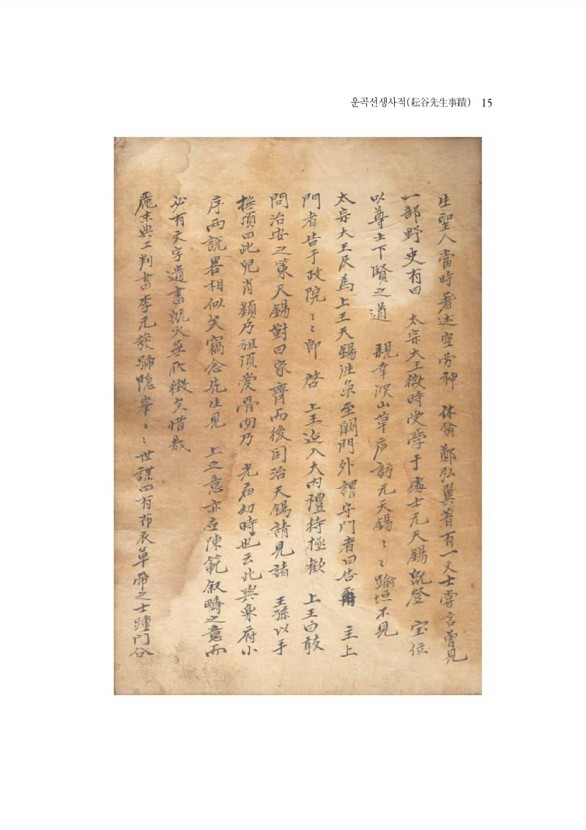 운곡선생사적(耘谷先生事蹟) 15
生聖人當時著述空勞神 休翁鄭弘翼著有一文士嘗言曾見
一部野史有曰 太宗大王微時受學于處士元天錫旣登 宝位
以尊士下賢之道 親幸深山草庐訪元天錫〻〻踰垣不見
太宗大王民為上王天錫進京至闕門外謂守門者曰告 主上
門者告于政院〻〻卽 啓 上王迎入大內禮待極歡 上王自敍
問治安之策天錫對曰家齊而後囯治天錫請見諸 王孫以手
撫頂曰此兒肖類乃祖須愛骨肉乃 光庿幼時也云此與樂府小
序兩說畧相似矣竊念先生見 上之意亦在陳範叙疇之意而
必有文字遺書旣火無所徵矣惜哉
麗末典工判書李元發號隱峯〻〻世譜曰有布衣革帶之士踵門谷